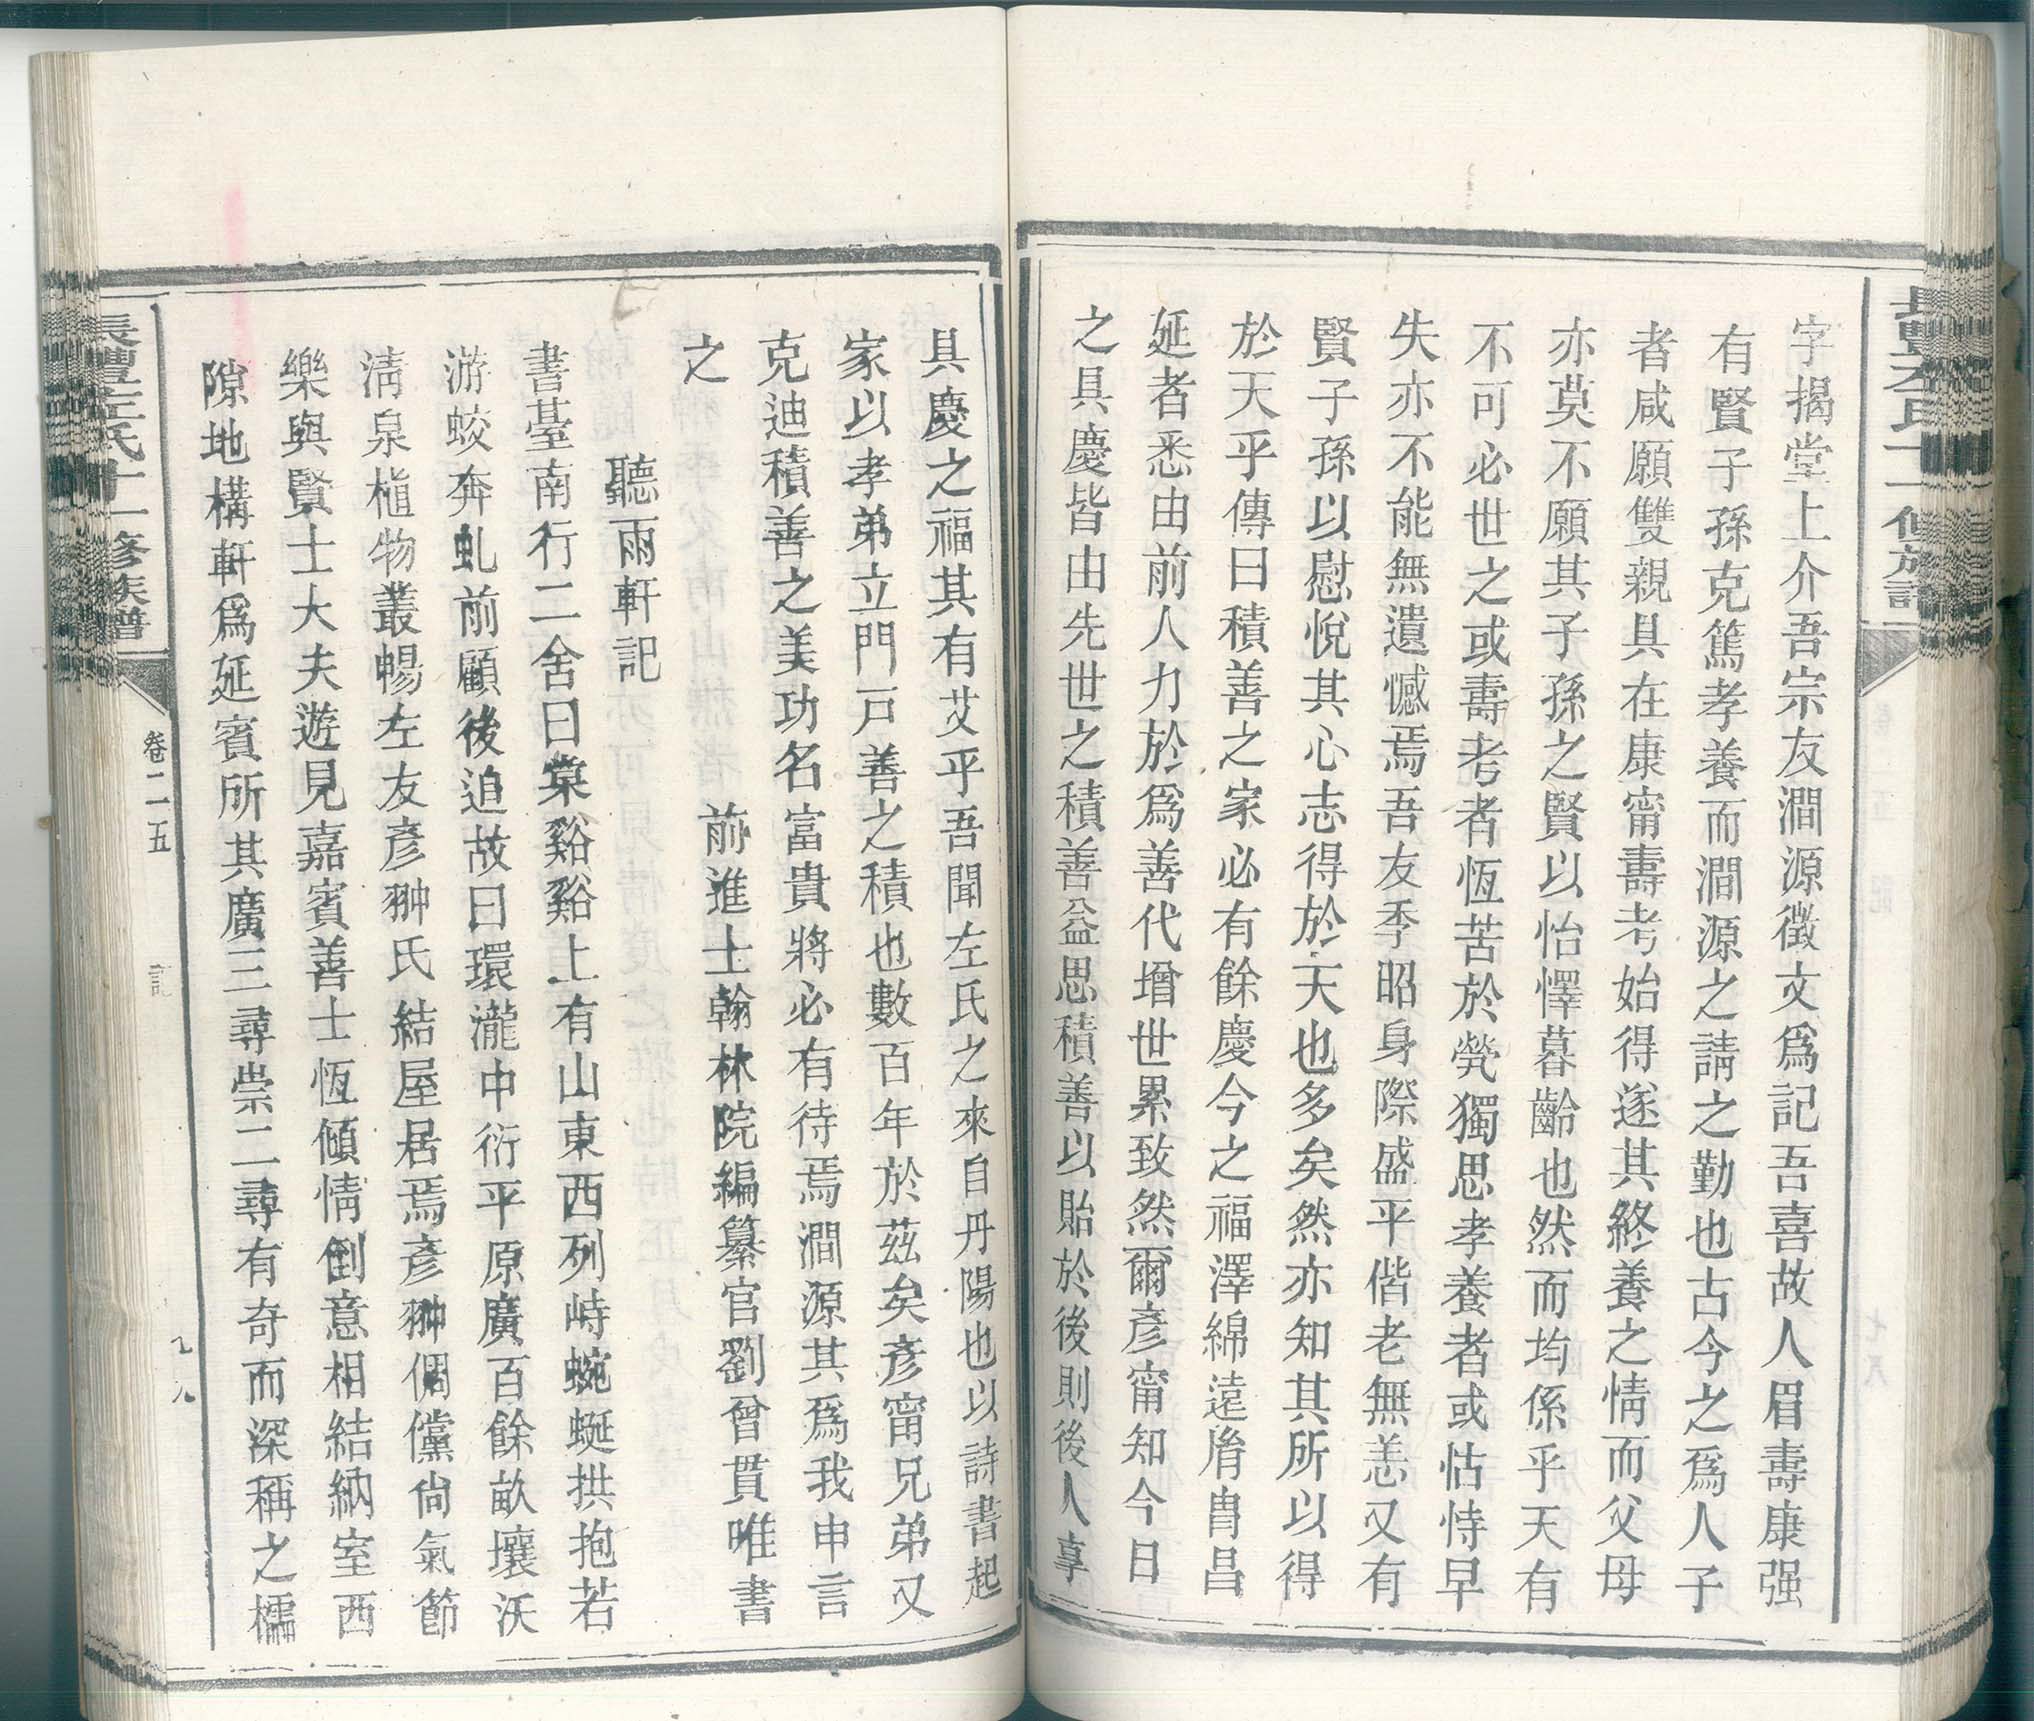 字揭堂上介吾宗友澗源徵文爲記吾喜故人眉壽康强
有賢子孫克篤孝養而澗源之請之勤也古今之爲人子
者咸願雙親具在康甯壽考始得遂其終養之情而父母
亦莫不願其子孫之賢以怡懌暮齡也然而均係乎天有
不可必世之或壽考者恆苦於煢獨思孝養者或怙恃早
失亦不能無遺憾焉吾友季昭身際盛平偕老無恙又有
賢子孫以慰悅其心志得於天也多矣然亦知其所以得
於天乎傳曰積善之家必有餘慶今之福澤綿遠胤胄昌
延者悉由前人力於爲善代增世累致然爾彥甯知今日
之具慶皆由先世之積善益思積善以貽於後則後人享
具慶之福其有艾乎吾聞左氏之來自丹陽也以詩書起
家以孝弟立門戸善之積也數百年於茲矣彥甯兄弟又
克迪積善之美功名富貴將必有待焉澗源其爲我申言
之
前進士翰林院編纂官劉曾貫唯書
聽雨軒記
書臺南行二舍曰棠谿谿上有山東西列峙蜿蜒拱抱若
游蛟奔虬前顧後追故曰環瀧中衍平原廣百餘畝壤沃
淸泉植物叢暢左友彥翀氏結屋居焉彥翀倜儻尙氣節
樂與賢士大夫遊見嘉賓善士恆傾情倒意相結納室西
隙地構軒爲延賓所其廣三尋崇二尋有奇而深稱之櫺
長豐左氏十一修族譜
卷二五
記